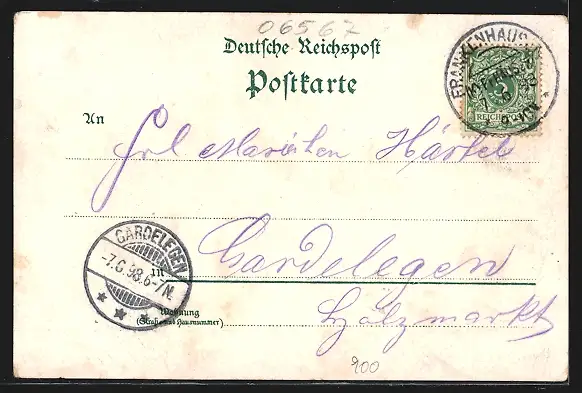 06567
Deutsche Reichspost
Postkarte
FRANKENHAUSEN
REICHSPOST
An
Frl Mariechen Härtel
GARDELEGEN
-7.6.98.6-7N.
in Gardelegen
Holzmarkt
Wohnung
(Straße und Hausnummer)
900